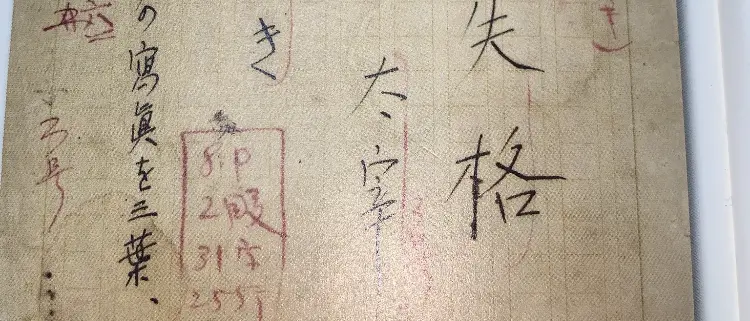 失格
太宰
き
8P
2段
31字
25行
の寫眞を三葉、
六号